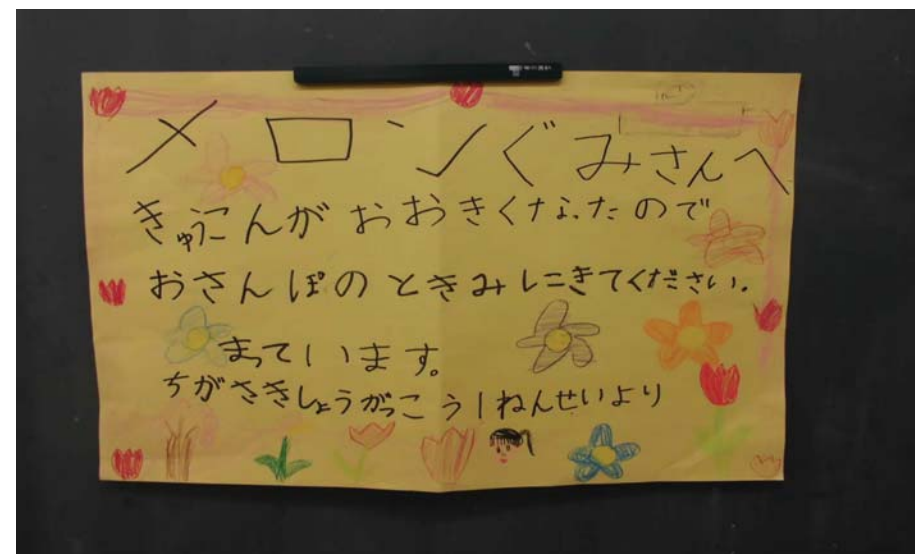 メロンぐみさんへ
きゅうこんがおおきくなったので
おさんぽのときみにきてください。
まっています。
ちがさきしょうがっこう1ねんせいより